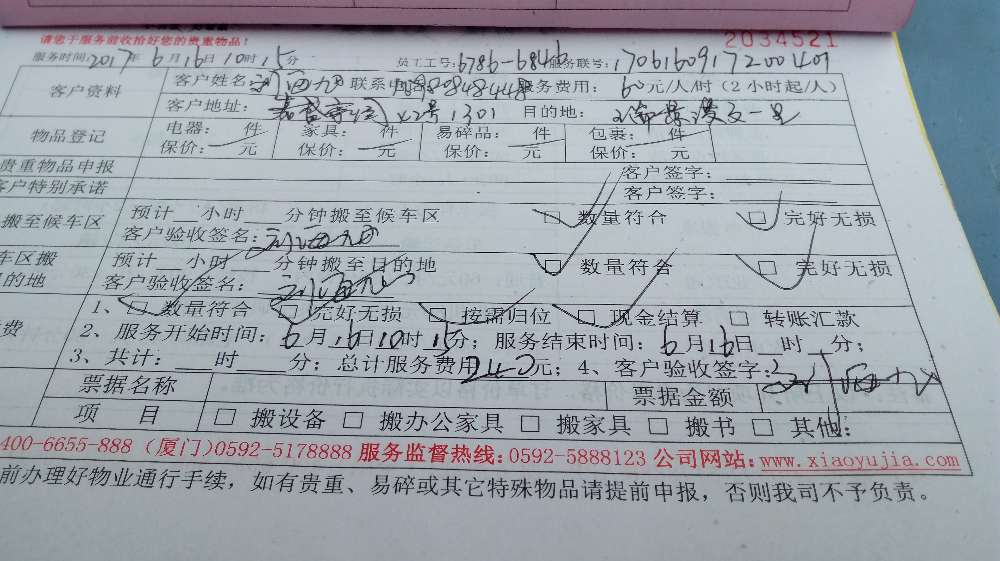 请您于服务前收拾好您的贵重物品! 2034521
服务时间: 2017年6月16日10时15分 员工工号: 6786-6846 服务联号: 1706160917200401
客户资料 客户姓名: 联系电话: 服务费用: 60元/人/时 (2小时起/人)
客户地址: 42号1301 目的地:
物品登记 电器: 件 家具: 件 易碎品: 件 包裹: 件
保价: 元 保价: 元 保价: 元 保价: 元
贵重物品申报 客户签字:
客户特别承诺 客户签字:
搬至候车区 预计 小时 分钟搬至候车区 □ 数量符合 □ 完好无损
客户验收签名:
车区搬 预计 小时 分钟搬至目的地 □ 数量符合 □ 完好无损
目的地 客户验收签名:
1、□ 数量符合 □ 完好无损 □ 按需归位 □ 现金结算 □ 转账汇款
费 2、服务开始时间: 6月16日10时15分; 服务结束时间: 6月16日 时 分;
3、共计: 时 分; 总计服务费用240元; 4、客户验收签字:
票据名称 票据金额
项 目 □ 搬设备 □ 搬办公家具 □ 搬家具 □ 搬书 □ 其他:
400-6655-888 (厦门)0592-5178888 服务监督热线:0592-5888123 公司网站:www.xiaoyujia.com
前办理好物业通行手续,如有贵重、易碎或其它特殊物品请提前申报,否则我司不予负责。